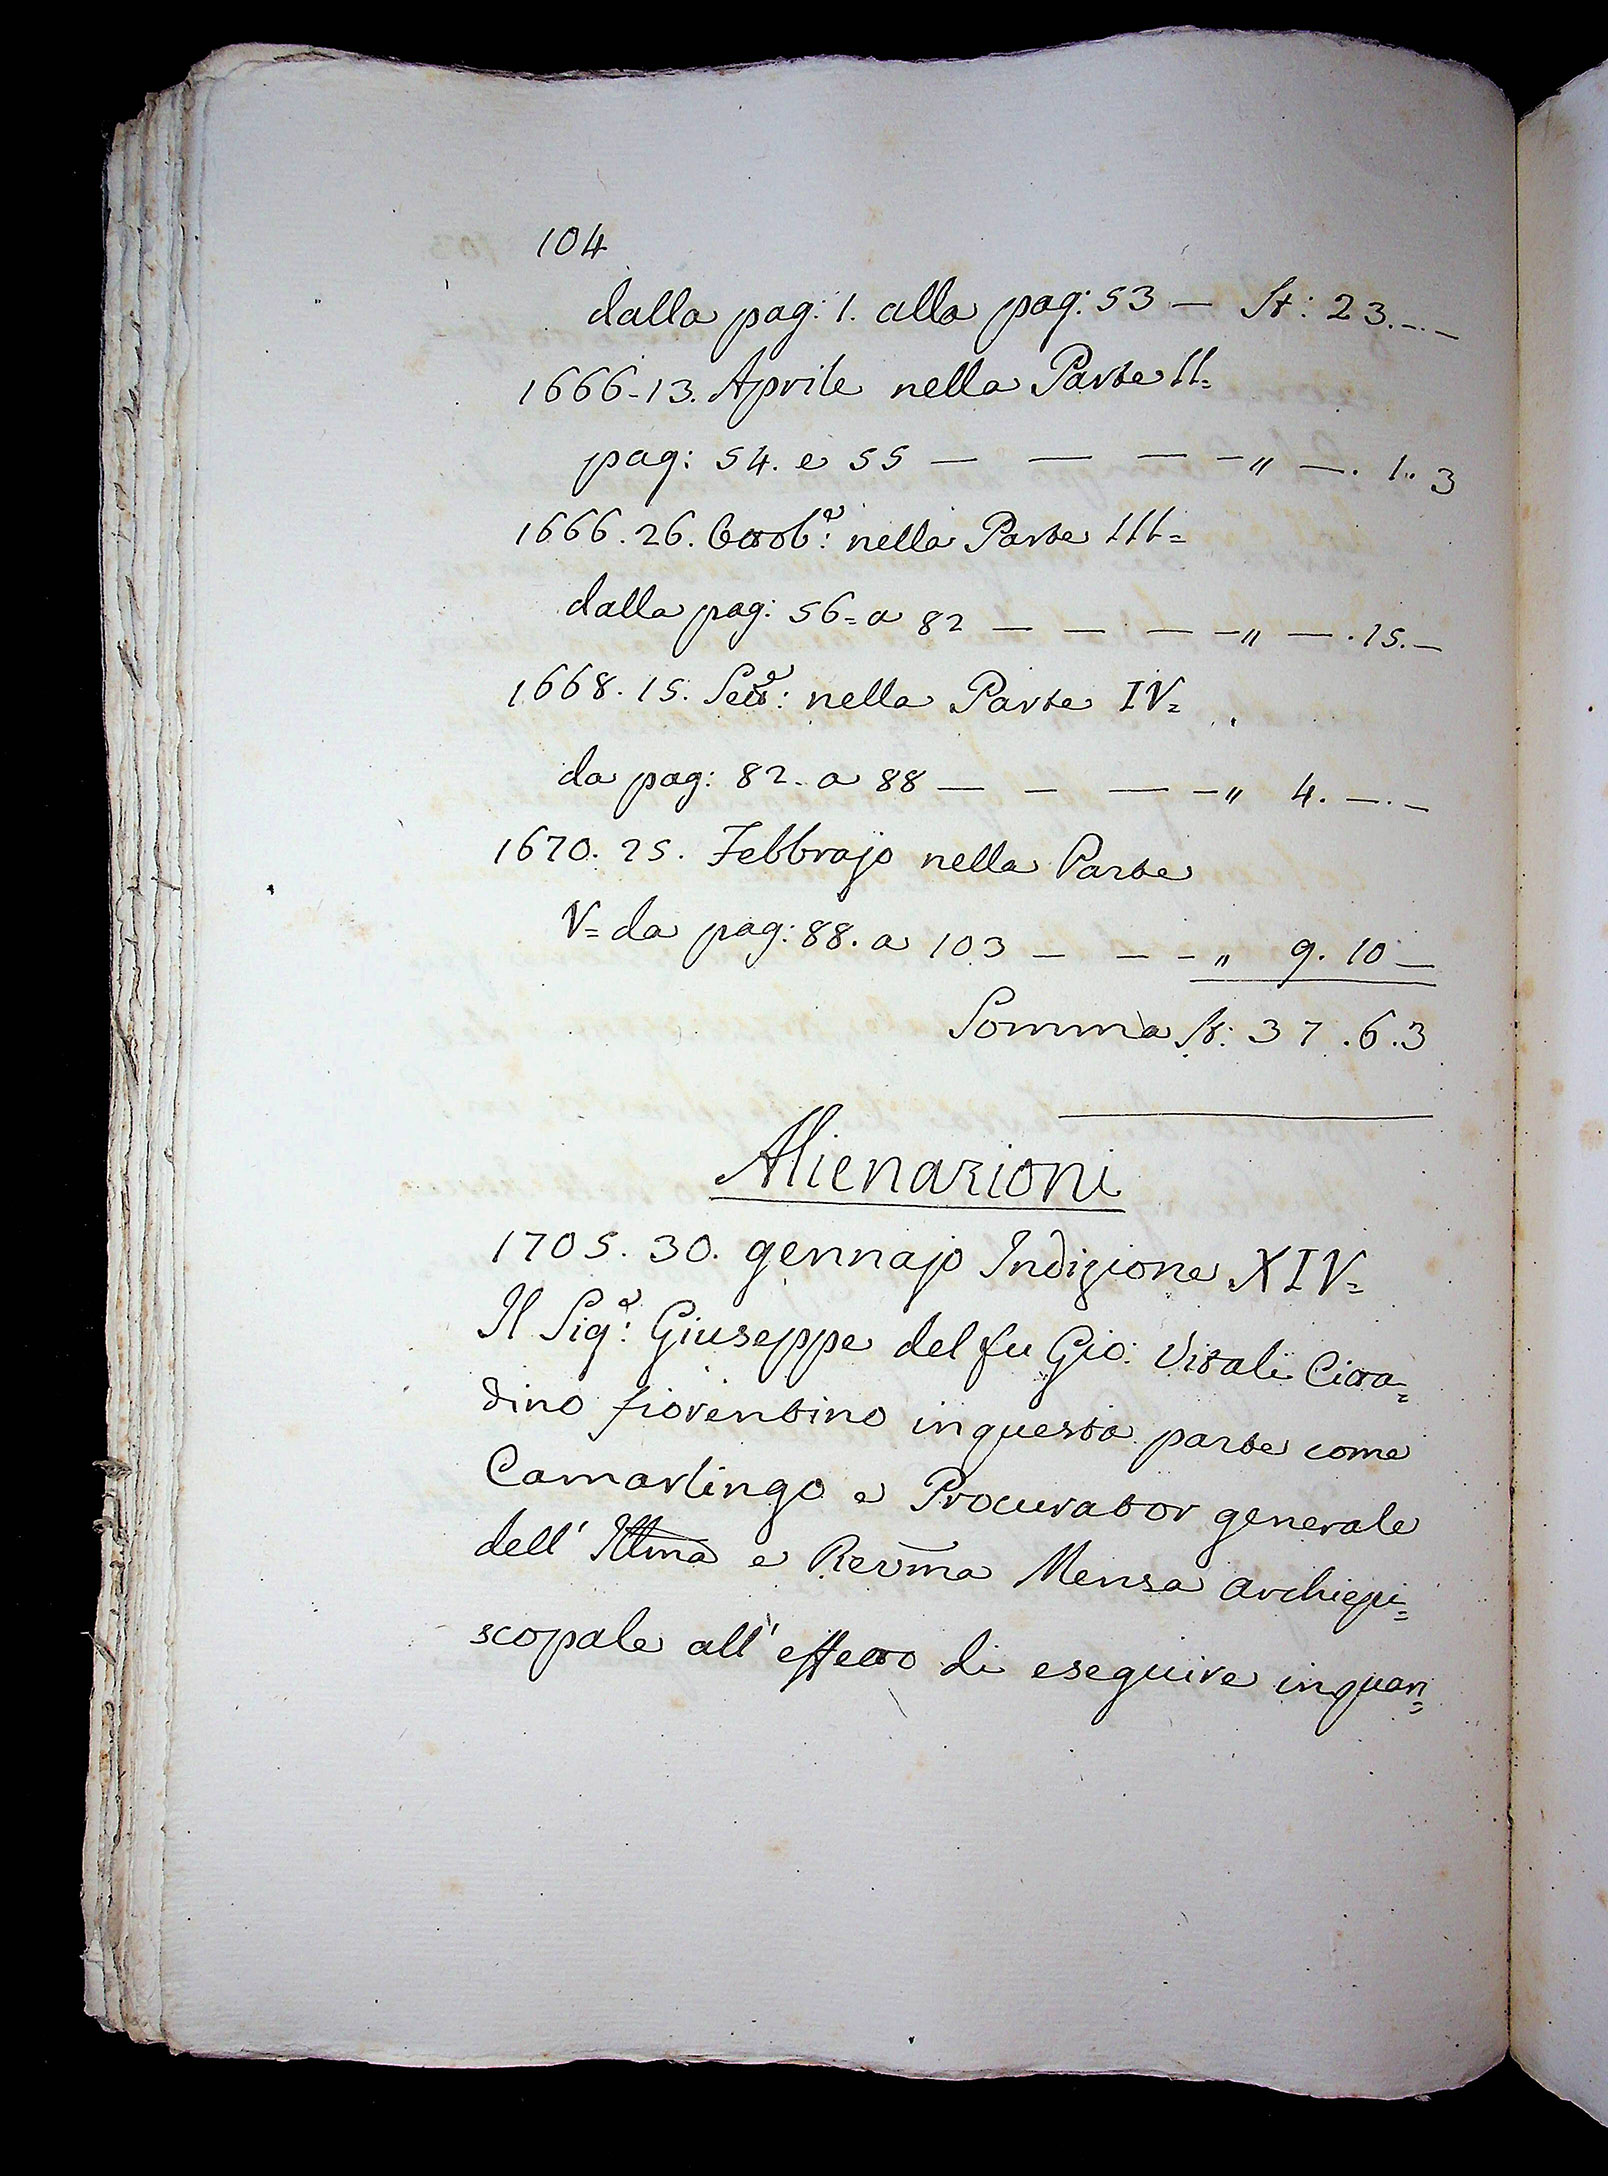 104
dalla pag: 1. alla pag: 53 — St: 23.—.—
1666-13. Aprile nella Parte II=
pag: 54. e 55 — — — — „ —. 1.. 3
1666. 26. Ottob.e: nella Parte III=
dalla pag: 56= a 82 — — — — „ —. 15. —
1668. 15. Sett.e: nella Parte IV=
da pag: 82- a 88 — — — — „ 4. —.—
1670. 25. Febbrajo nella Parte
V= da pag: 88. a 103 — — — „ 9. 10 —
Somma St: 37 .6.3
Alienazioni
1705. 30. gennajo Indizione XIV=
Il Sig.e: Giuseppe del fu Gio: Vitali Citta=
dino fiorentino in questa parte come
Camarlingo e Procurator generale
dell' Illma e Revma Mensa archiepi=
scopale all' effetto di eseguire in quan=